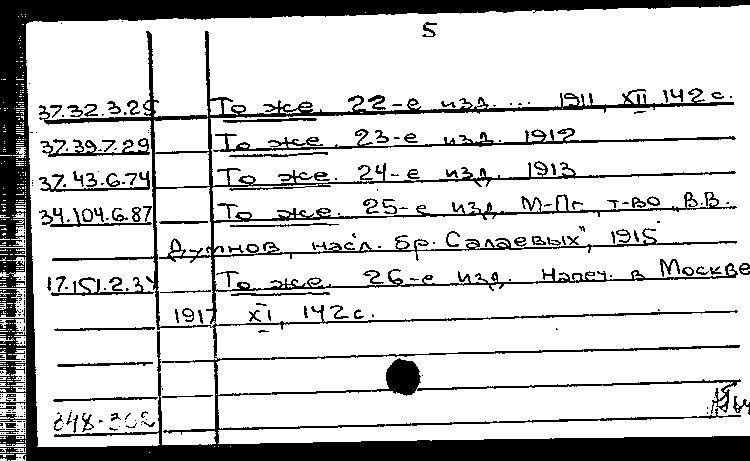 5
37.32.3.25 То же. 22-е изд. ... 1911, XII, 142 с.
37.39.7.29 То же. 23-е изд. 1912
37.43.6.74 То же. 24-е изд. 1913
34.104.6.87 То же. 25-е изд. М-Пг, т-во „В.В.
Думнов, насл. бр. Салаевых", 1915
17.151.2.34 То же. 26-е изд. Напеч. в Москве
1917 XI, 142 с.